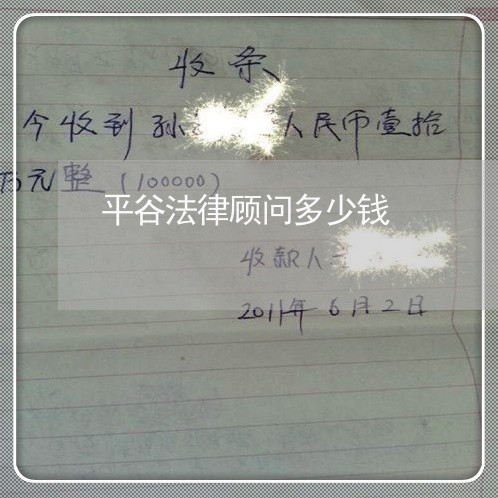 收条
今收到孙 人民币壹拾
万元整（100000）
平谷法律顾问多少钱
收款人
2011年6月2日